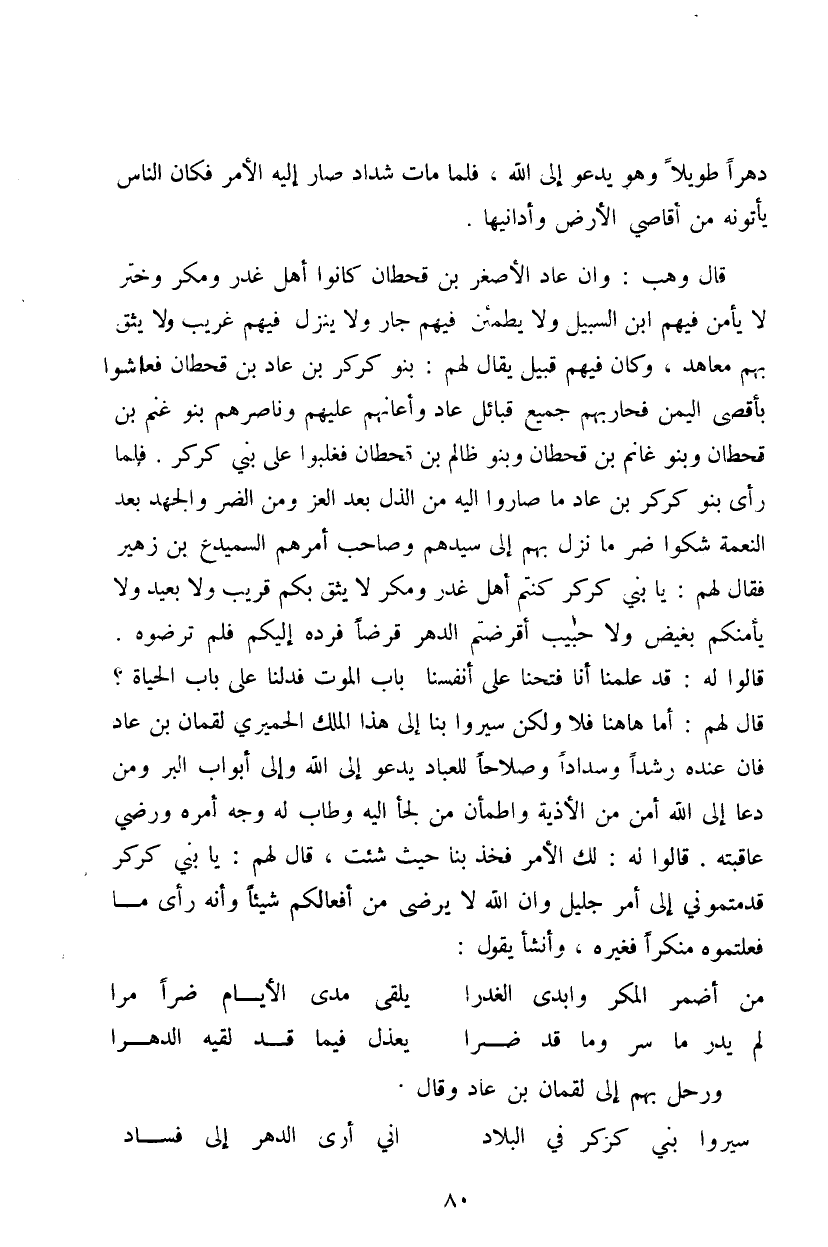 دهراً طويلاً وهو يدعو إلى الله ، فلما مات شداد صار إليه الأمر فكان الناس
يأتونه من أقاصي الأرض وأدانيها .
قال وهب : وان عاد الأصغر بن قحطان كانوا أهل غدر ومكر وختر
لا يأمن فيهم ابن السبيل ولا يطمئن فيهم جار ولا ينزل فيهم غريب ولا يثق
بهم معاهد ، وكان فيهم قبيل يقال لهم : بنو كركر بن عاد بن قحطان فعاشوا
بأقصى اليمن فحاربهم جميع قبائل عاد وأعانهم عليهم وناصرهم بنو غنم بن
قحطان وبنو غانم بن قحطان وبنو ظالم بن قحطان فغلبوا على بني كركر . فلما
رأى بنو كركر بن عاد ما صاروا اليه من الذل بعد العز ومن الضر والجهد بعد
النعمة شكوا ضر ما نزل بهم إلى سيدهم وصاحب أمرهم السميدع بن زهير
فقال لهم : يا بني كركر كنتم أهل غدر ومكر لا يثق بكم قريب ولا بعيد ولا
يأمنكم بغيض ولا حبيب أقرضتم الدهر قرضاً فرده إليكم فلم ترضوه .
قالوا له : قد علمنا أنا فتحنا على أنفسنا باب الموت فدلنا على باب الحياة ؟
قال لهم : أما هاهنا فلا ولكن سيروا بنا إلى هذا الملك الحميري لقمان بن عاد
فان عنده رشداً وسداداً وصلاحاً للعباد يدعو إلى الله وإلى أبواب البر ومن
دعا إلى الله أمن من الأذية واطمأن من لجأ اليه وطاب له وجه أمره ورضي
عاقبته . قالوا له : لك الأمر فخذ بنا حيث شئت ، قال لهم : يا بني كركر
قدمتموني إلى أمر جليل وان الله لا يرضى من أفعالكم شيئاً وأنه رأى مـــا
فعلتموه منكراً فغيره ، وأنشأ يقول :
من أضمر المكر وابدى الغدرا يلقى مدى الأيـــام ضراً مرا
لم يدر ما سر وما قد ضـــرا يعذل فيما قـــد لقيه الدهـــرا
ورحل بهم إلى لقمان بن عاد وقال .
سيروا بني كركر في البلاد اني أرى الدهر إلى فســـاد
٨٠